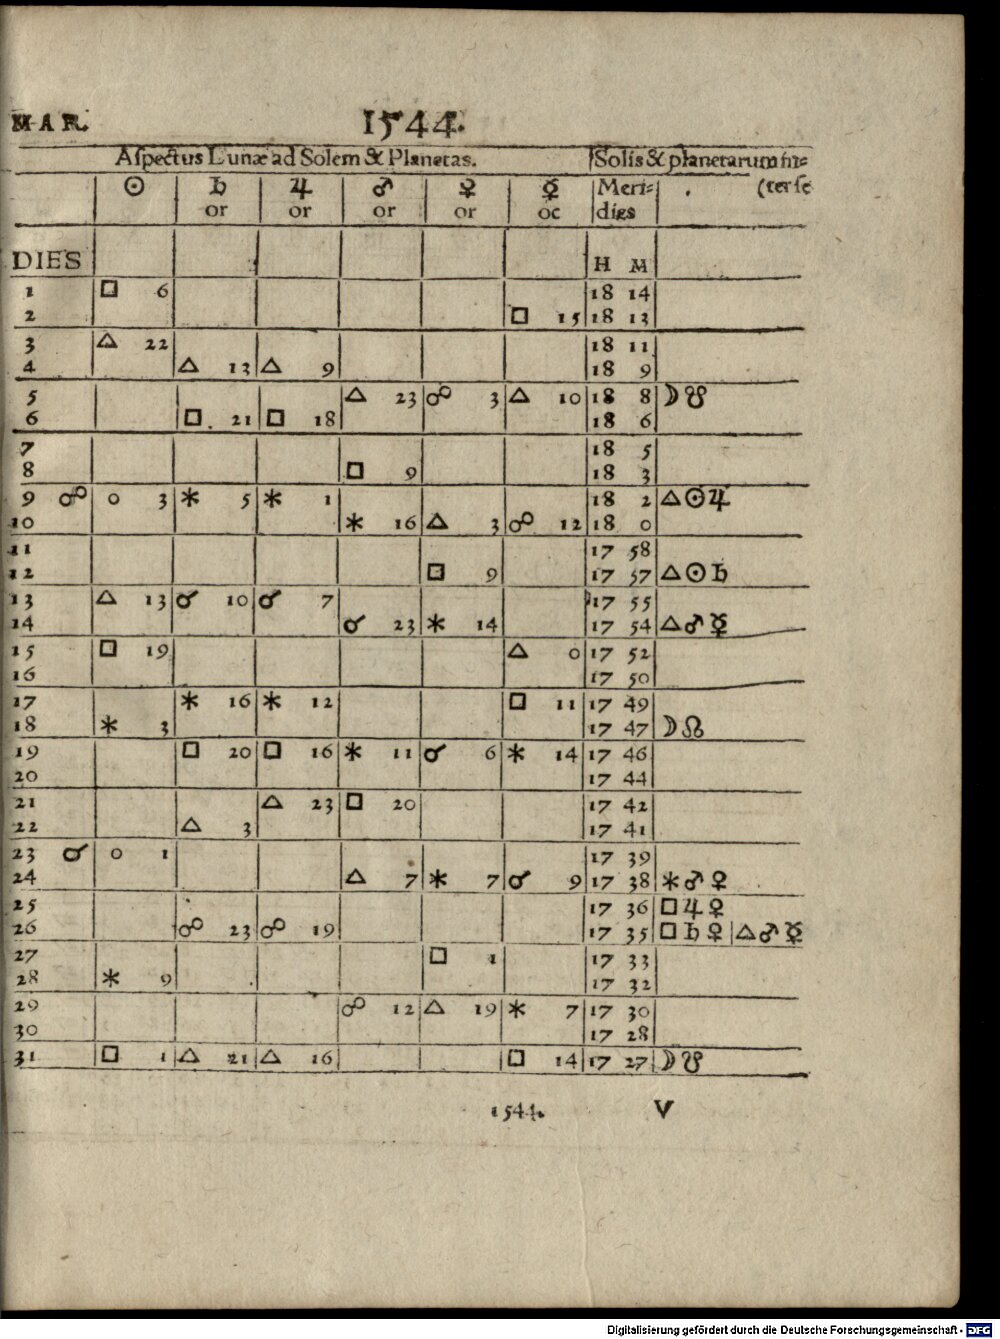 MAR. 1544.
Aſpectus Lunæ ad Solem & Planetas. Solis & planetarum in⸗
☉ ♄ ♃ ♂ ♀ ☿ Meri⸗ (ter ſe
or or or or oc dies
DIES H M
1 □ 6 18 14
2 □ 15 18 13
3 △ 22 18 11
4 △ 13 △ 9 18 9
5 △ 23 ☍ 3 △ 10 18 8 ☽☋
6 □ 21 □ 18 18 6
7 18 5
8 □ 9 18 3
9 ☍ o 3 ⚹ 5 ⚹ 1 18 2 △☉♃
10 ⚹ 16 △ 3 ☍ 12 18 0
11 17 58
12 □ 9 17 57 △☉♄
13 △ 13 ☌ 10 ☌ 7 17 55
14 ☌ 23 ⚹ 14 17 54 △♂☿
15 □ 19 △ 0 17 52
16 17 50
17 ⚹ 16 ⚹ 12 □ 11 17 49
18 ⚹ 3 17 47 ☽☊
19 □ 20 □ 16 ⚹ 11 ☌ 6 ⚹ 14 17 46
20 17 44
21 △ 23 □ 20 17 42
22 △ 3 17 41
23 ☌ o 1 17 39
24 △ 7 ⚹ 7 ☌ 9 17 38 ⚹♂♀
25 17 36 □♃♀
26 ☍ 23 ☍ 19 17 35 □♄♀ △♂☿
27 □ 1 17 33
28 ⚹ 9 17 32
29 ☍ 12 △ 19 ⚹ 7 17 30
30 17 28
31 □ 1 △ 21 △ 16 □ 14 17 27 ☽☋
1544. V
Digitalisierung gefördert durch die Deutsche Forschungsgemeinschaft - DFG